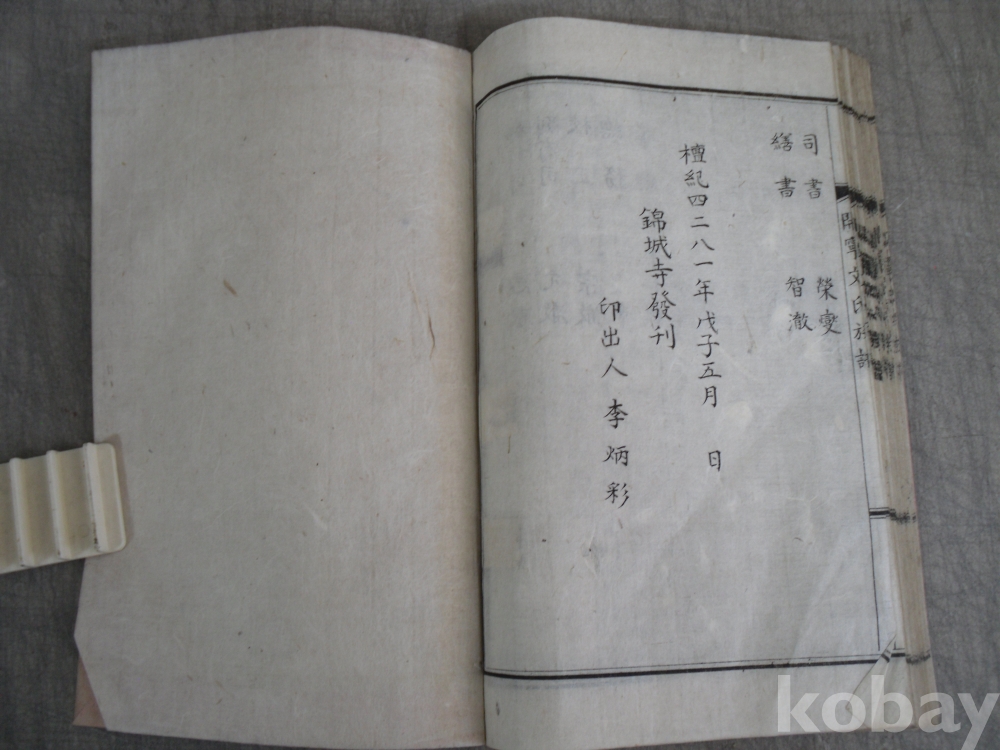 司書 榮燮
繕書 智澈
檀紀四二八一年戊子五月 日
錦城寺發刋
印出人 李炳彩
kobay